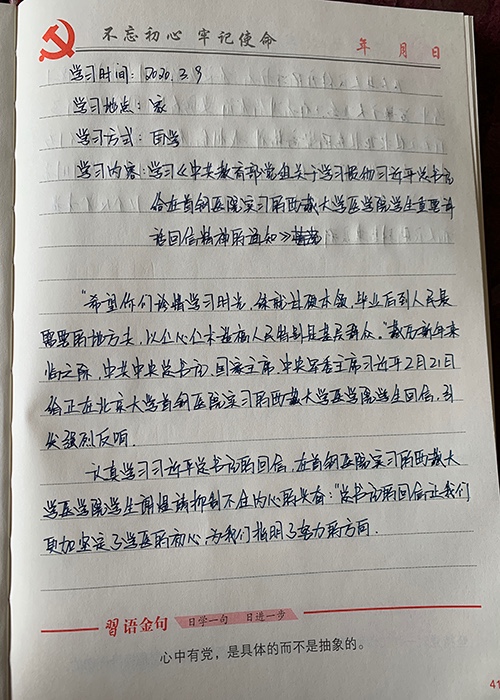 不忘初心 牢记使命
年 月 日
学习时间：2020.3.9
学习地点：家
学习方式：自学
学习内容：学习《中共教育部党组关于学习报他习近平总书记
给在首钢医院实习的西藏大学医学院学生重要讲
话回信精神的通知》
“希望你们珍惜学习时光，练就过硬本领，毕业后到人民最
需要的地方去，以仁心仁术造福人民特别是基层群众。”藏历新年来
临之际，中共中央总书记、国家主席、中央军委主席习近平2月21日
给正在北京大学首钢医院实习的西藏大学医学院学生回信，引
发强烈反响．
认真学习习近平总书记的回信，在首钢医院实习的西藏大
学医学院学生 抑制不住内心的喜悦：“总书记的回信让我们
更加坚定了学医的初心，为我们指明了努力的方向．
習語金句 日学一句 日进一步
心中有党，是具体的而不是抽象的。
41